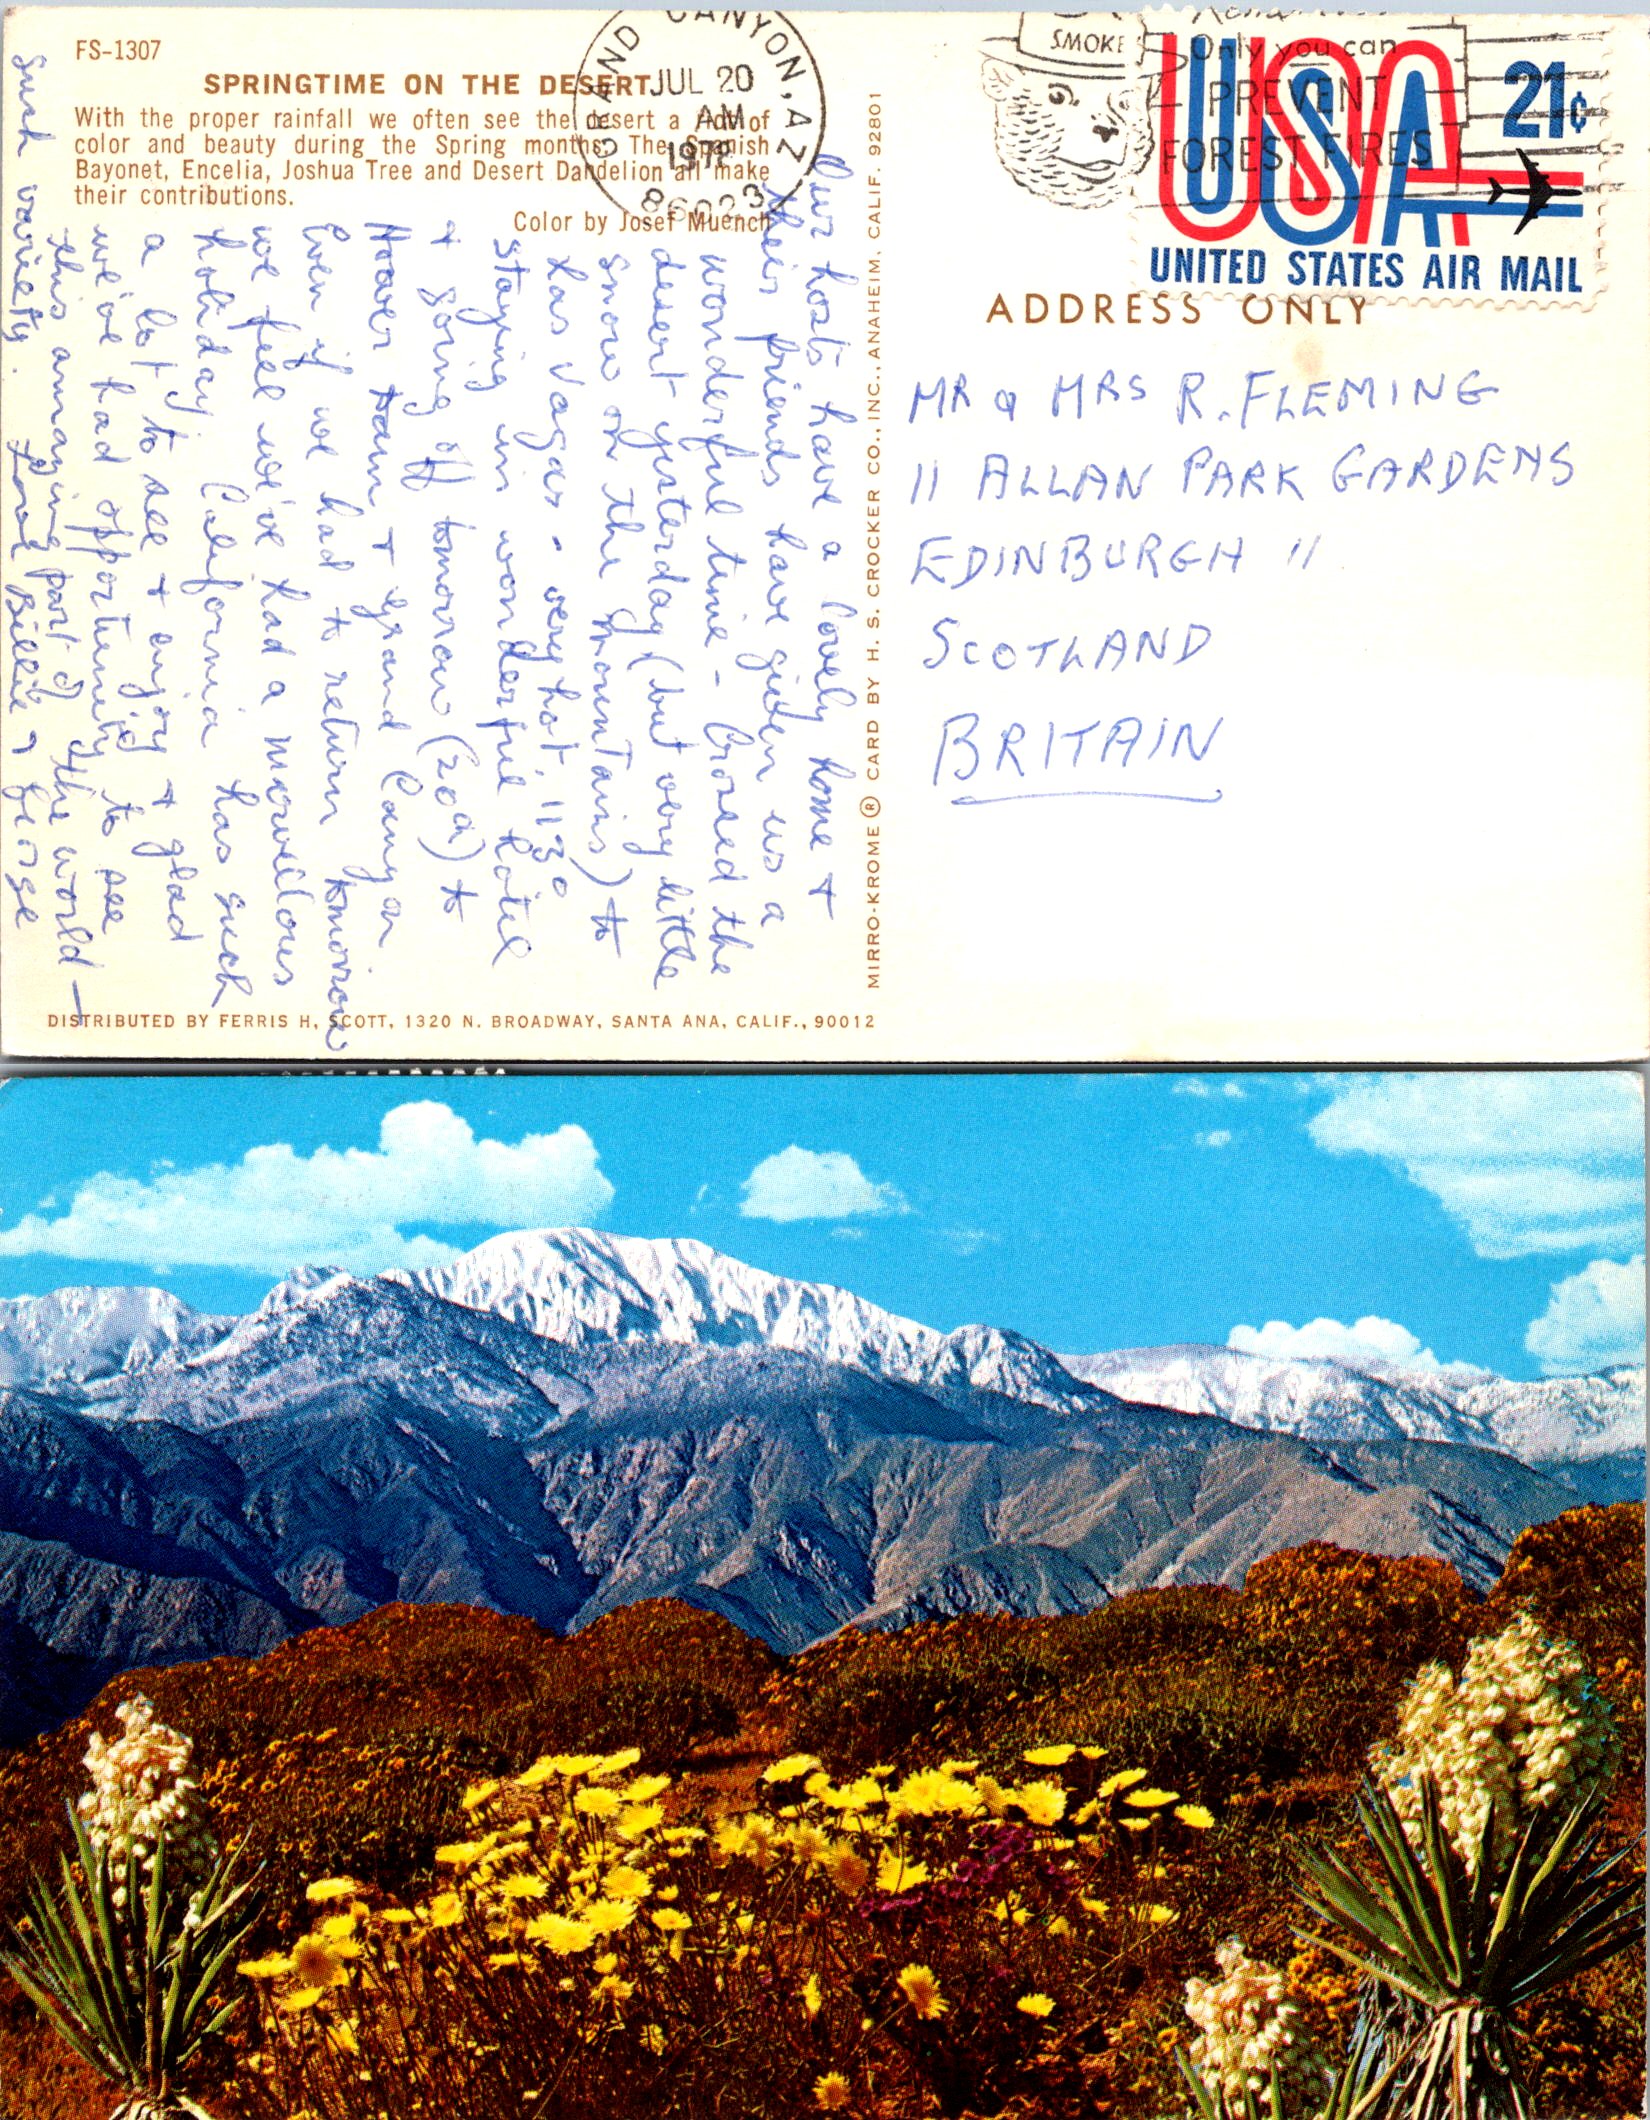 FS-1307
SPRINGTIME ON THE DESERT
With the proper rainfall we often see the desert a riot of
color and beauty during the Spring months. The Spanish
Bayonet, Encelia, Joshua Tree and Desert Dandelion all make
their contributions.
Color by Josef Muench
GRAND CANYON, AZ
JUL 20
AM
1972
86023
SMOKEY
Only you can
PREVENT
FOREST FIRES
USA
21¢
UNITED STATES AIR MAIL
ADDRESS ONLY
MR & MRS R. FLEMING
11 ALLAN PARK GARDENS
EDINBURGH 11
SCOTLAND
BRITAIN
Our hosts have a lovely home +
their friends have given us a
wonderful time - Crossed the
desert yesterday (but very little
snow on the mountains) to
Las Vagas - very hot 113°
staying in wonderful hotel
+ going off tomorrow (20th) to
Hoover Dam + Grand Canyon
Even if we had to return tomorrow
we feel we've had a marvellous
holiday. California has such
a lot to see + enjoy + glad
we've had opportunity to see
this amazing part of the world -
such variety. Love Billie & George
MIRRO-KROME ® CARD BY H. S. CROCKER CO., INC., ANAHEIM, CALIF. 92801
DISTRIBUTED BY FERRIS H. SCOTT, 1320 N. BROADWAY, SANTA ANA, CALIF., 90012